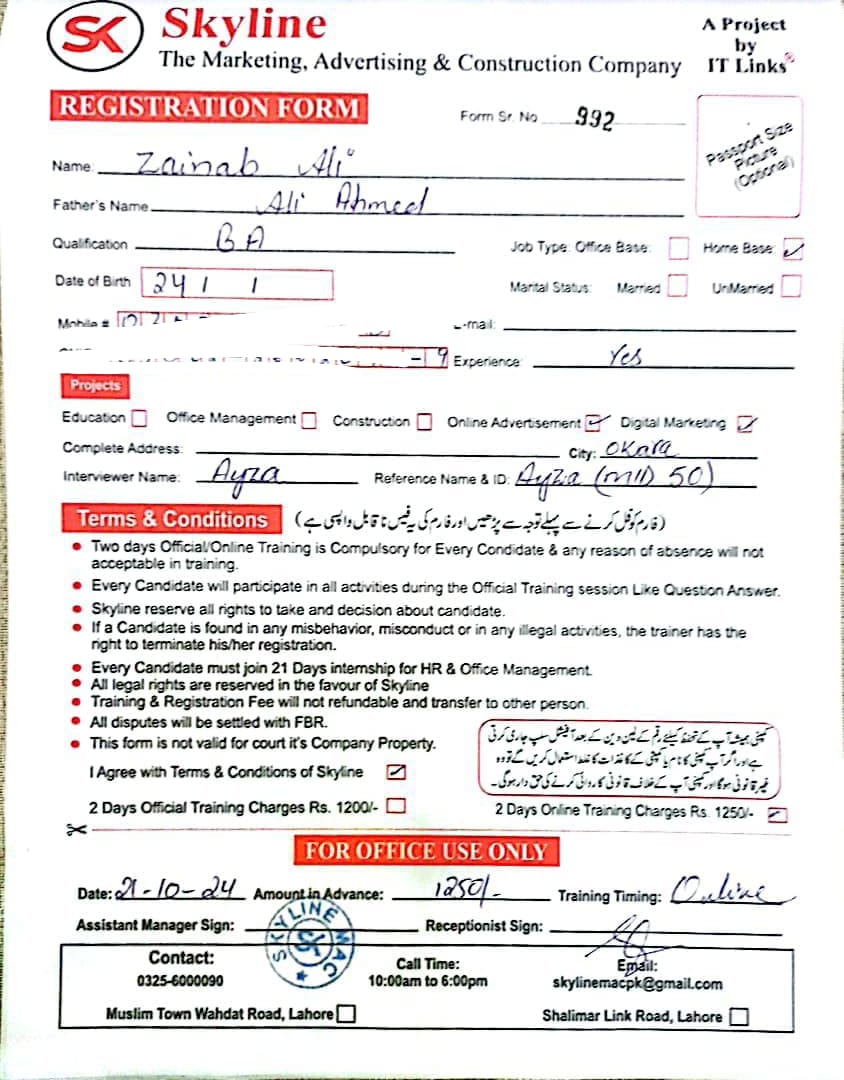 SK
Skyline
The Marketing, Advertising & Construction Company
A Project
by
IT Links
REGISTRATION FORM
Form Sr. No 992
Passport Size
Picture
(Optional)
Name: Zainab Ali
Father's Name Ali Ahmed
Qualification BA
Job Type: Office Base: Home Base: ✓
Date of Birth 24 / /
Marital Status: Married UnMarried
Mobile #
E-mail:
- 9 Experience: Yes
Projects
Education Office Management Construction Online Advertisement ✓ Digital Marketing ✓
Complete Address: City: Okara
Interviewer Name: Ayza Reference Name & ID: Ayza (MID 50)
Terms & Conditions (فارم کو فل کرنے سے پہلے توجہ سے پڑھیں اور فارم کی یہ فیس ناقابل واپسی ہے)
• Two days Official/Online Training is Compulsory for Every Condidate & any reason of absence will not
acceptable in training.
• Every Candidate will participate in all activities during the Official Training session Like Question Answer.
• Skyline reserve all rights to take and decision about candidate.
• If a Candidate is found in any misbehavior, misconduct or in any illegal activities, the trainer has the
right to terminate his/her registration.
• Every Candidate must join 21 Days internship for HR & Office Management.
• All legal rights are reserved in the favour of Skyline
• Training & Registration Fee will not refundable and transfer to other person.
• All disputes will be settled with FBR.
• This form is not valid for court it's Company Property.
کمپنی ہمیشہ آپ کے تحفظ کیلئے رقم کے لین دین کے بعد آفیشل سلپ جاری کرتی
ہے اور اگر آپ کمپنی کا نام یا کمپنی کے کاغذات کا غلط استعمال کریں گے تو وہ
غیر قانونی ہوگا اور کمپنی آپ کے خلاف قانونی کاروائی کرنے کی حق دار ہوگی۔
I Agree with Terms & Conditions of Skyline ✓
2 Days Official Training Charges Rs. 1200/-
2 Days Online Training Charges Rs. 1250/- ✓
FOR OFFICE USE ONLY
Date: 21-10-24 Amount in Advance: 1250/- Training Timing: Online
Assistant Manager Sign: Receptionist Sign:
SKYLINE MAC
SK
Contact:
0325-6000090
Call Time:
10:00am to 6:00pm
Email:
skylinemacpk@gmail.com
Muslim Town Wahdat Road, Lahore
Shalimar Link Road, Lahore